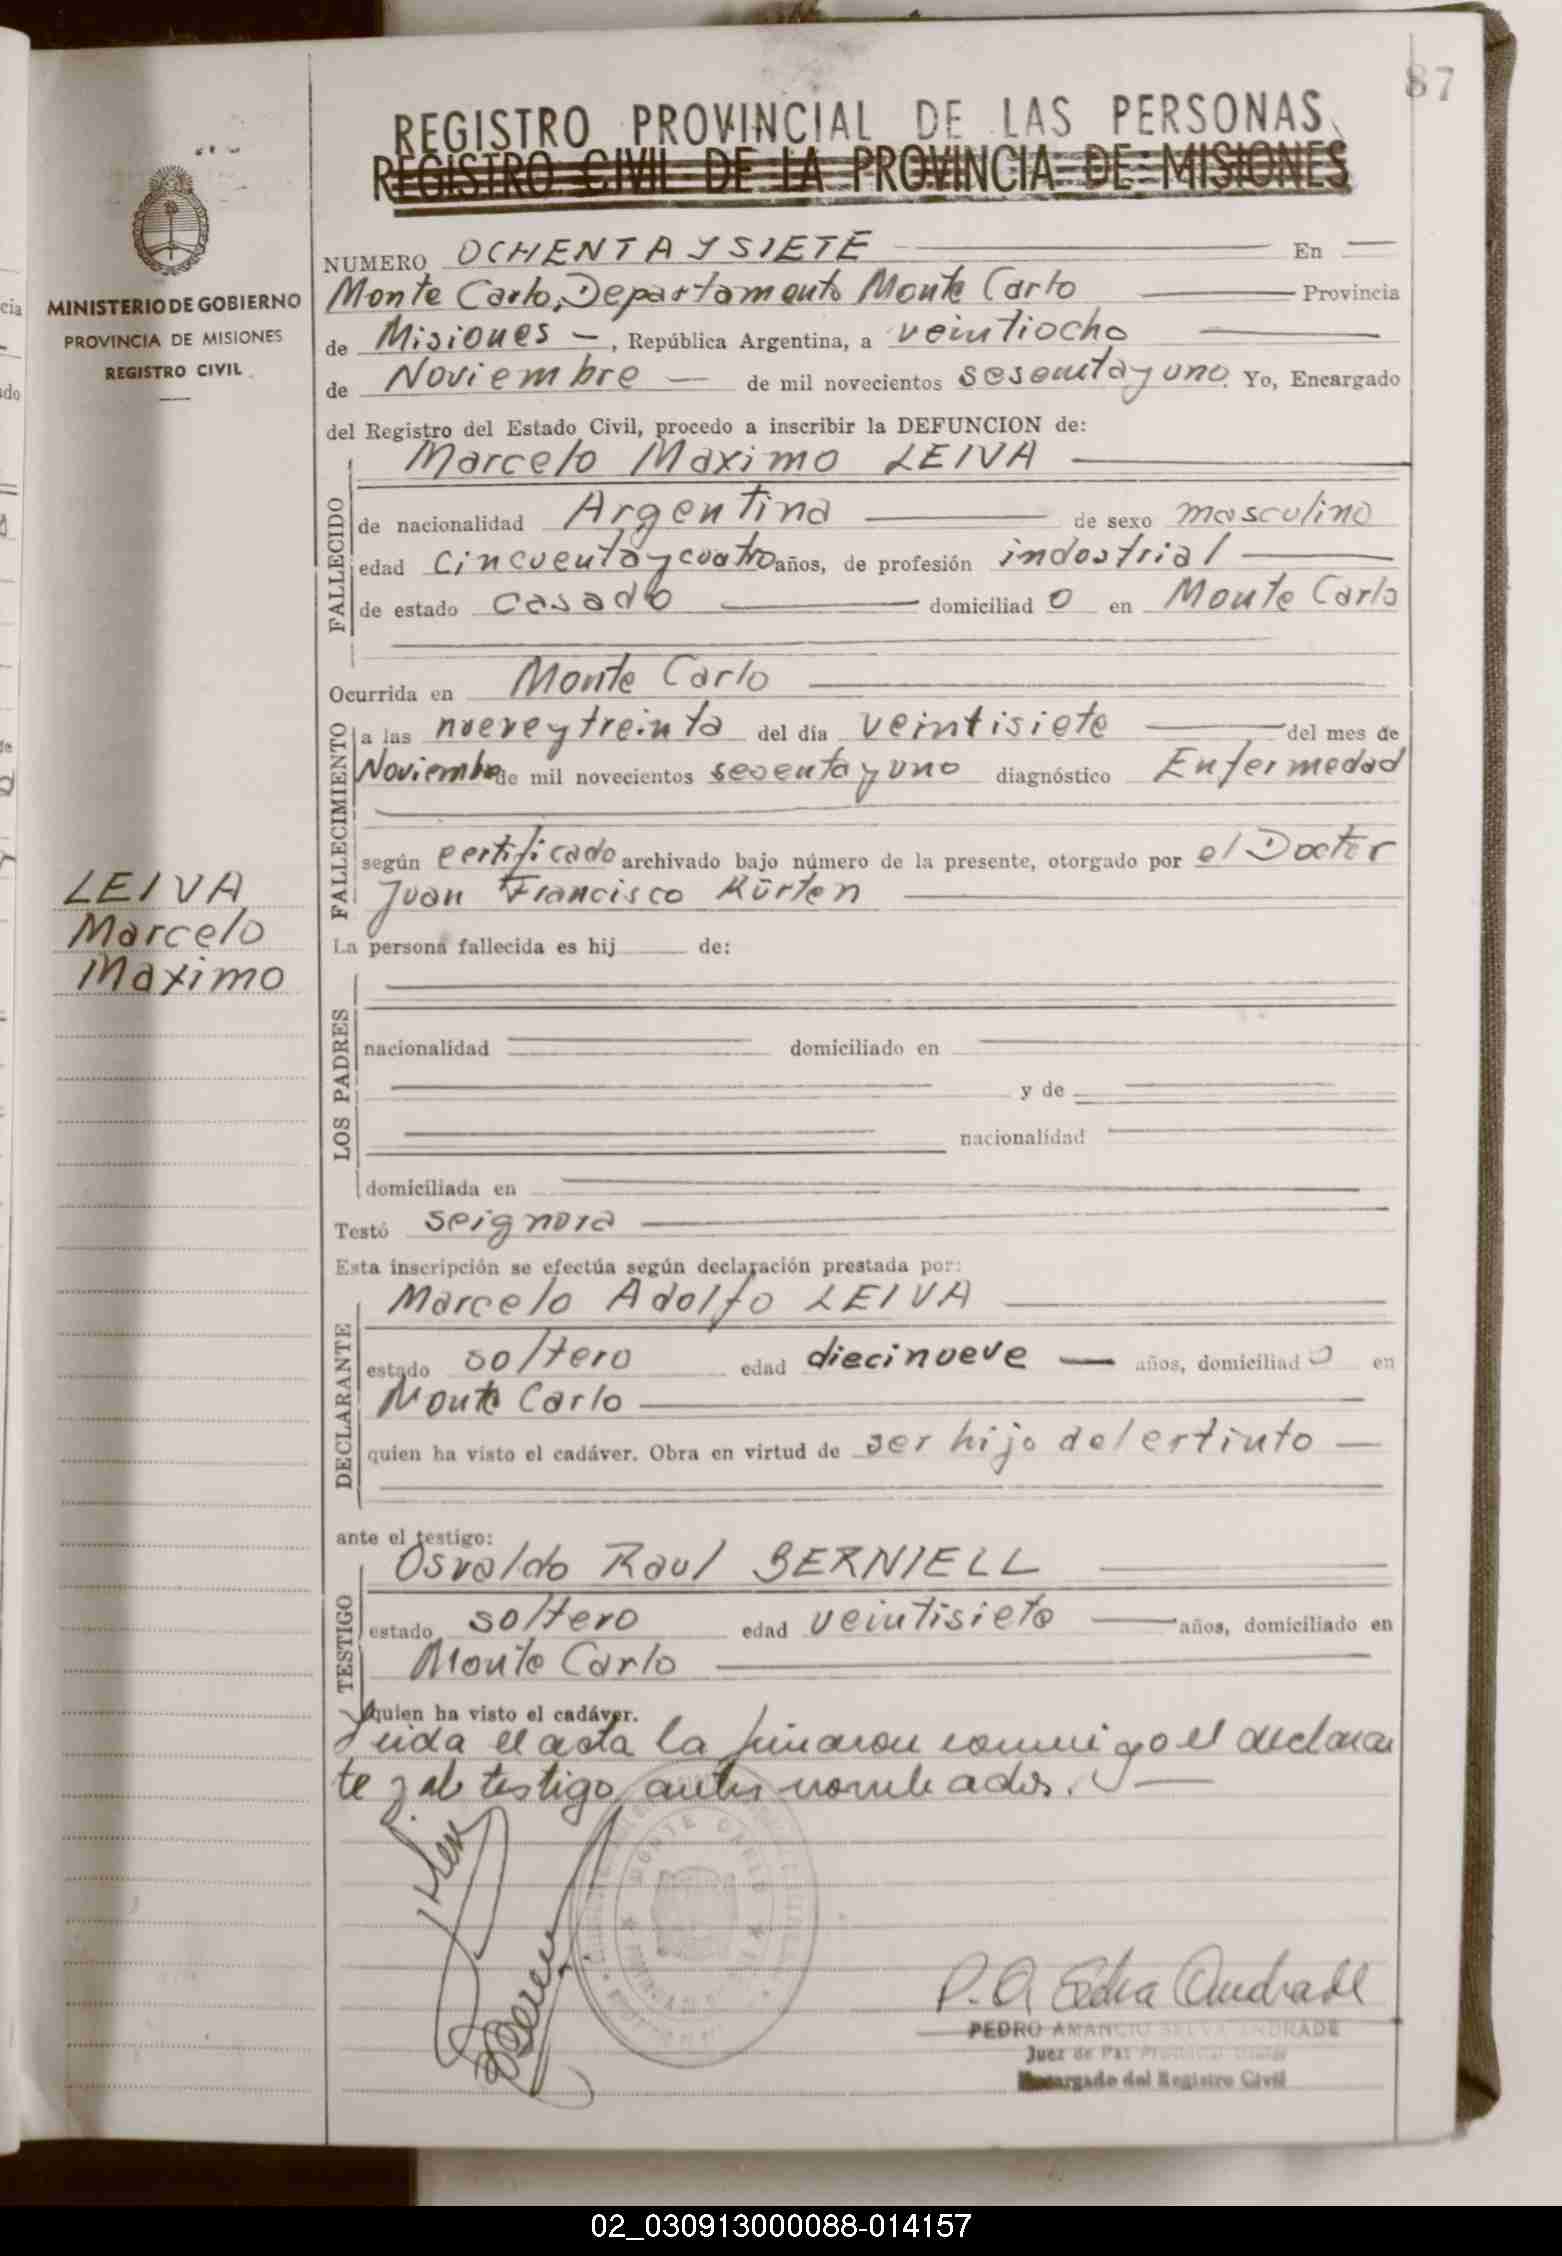 87
REGISTRO PROVINCIAL DE LAS PERSONAS
REGISTRO CIVIL DE LA PROVINCIA DE MISIONES
MINISTERIO DE GOBIERNO
PROVINCIA DE MISIONES
REGISTRO CIVIL
NUMERO OCHENTA Y SIETE En
Monte Carlo, Departamento Monte Carlo Provincia
de Misiones, República Argentina, a veintiocho
de Noviembre de mil novecientos sesenta y uno Yo, Encargado
del Registro del Estado Civil, procedo a inscribir la DEFUNCION de:
FALLECIDO
Marcelo Maximo LEIVA
de nacionalidad Argentina de sexo masculino
edad cincuenta y cuatro años, de profesión industrial
de estado casado domiciliad o en Monte Carlo
FALLECIMIENTO
Ocurrida en Monte Carlo
a las nueve y treinta del día veintisiete del mes de
Noviembre de mil novecientos sesenta y uno diagnóstico Enfermedad
según certificado archivado bajo número de la presente, otorgado por el Doctor
Juan Francisco Kürten
LEIVA
Marcelo
Maximo
La persona fallecida es hij de:
LOS PADRES
nacionalidad domiciliado en
y de
nacionalidad
domiciliada en
Testó seignora
Esta inscripción se efectúa según declaración prestada por:
DECLARANTE
Marcelo Adolfo LEIVA
estado soltero edad diecinueve años, domiciliad o en
Monte Carlo
quien ha visto el cadáver. Obra en virtud de ser hijo del extinto
ante el testigo:
TESTIGO
Osvaldo Raul BERNIELL
estado soltero edad veintisiete años, domiciliado en
Monte Carlo
quien ha visto el cadáver.
Leida el acta la firmaron conmigo el declaran
te y el testigo antes nombrados.
MONTE CARLO
P. A. Selva Andrade
PEDRO AMANCIO SELVA ANDRADE
Juez de Paz Provincial Titular
Encargado del Registro Civil
02_030913000088-014157